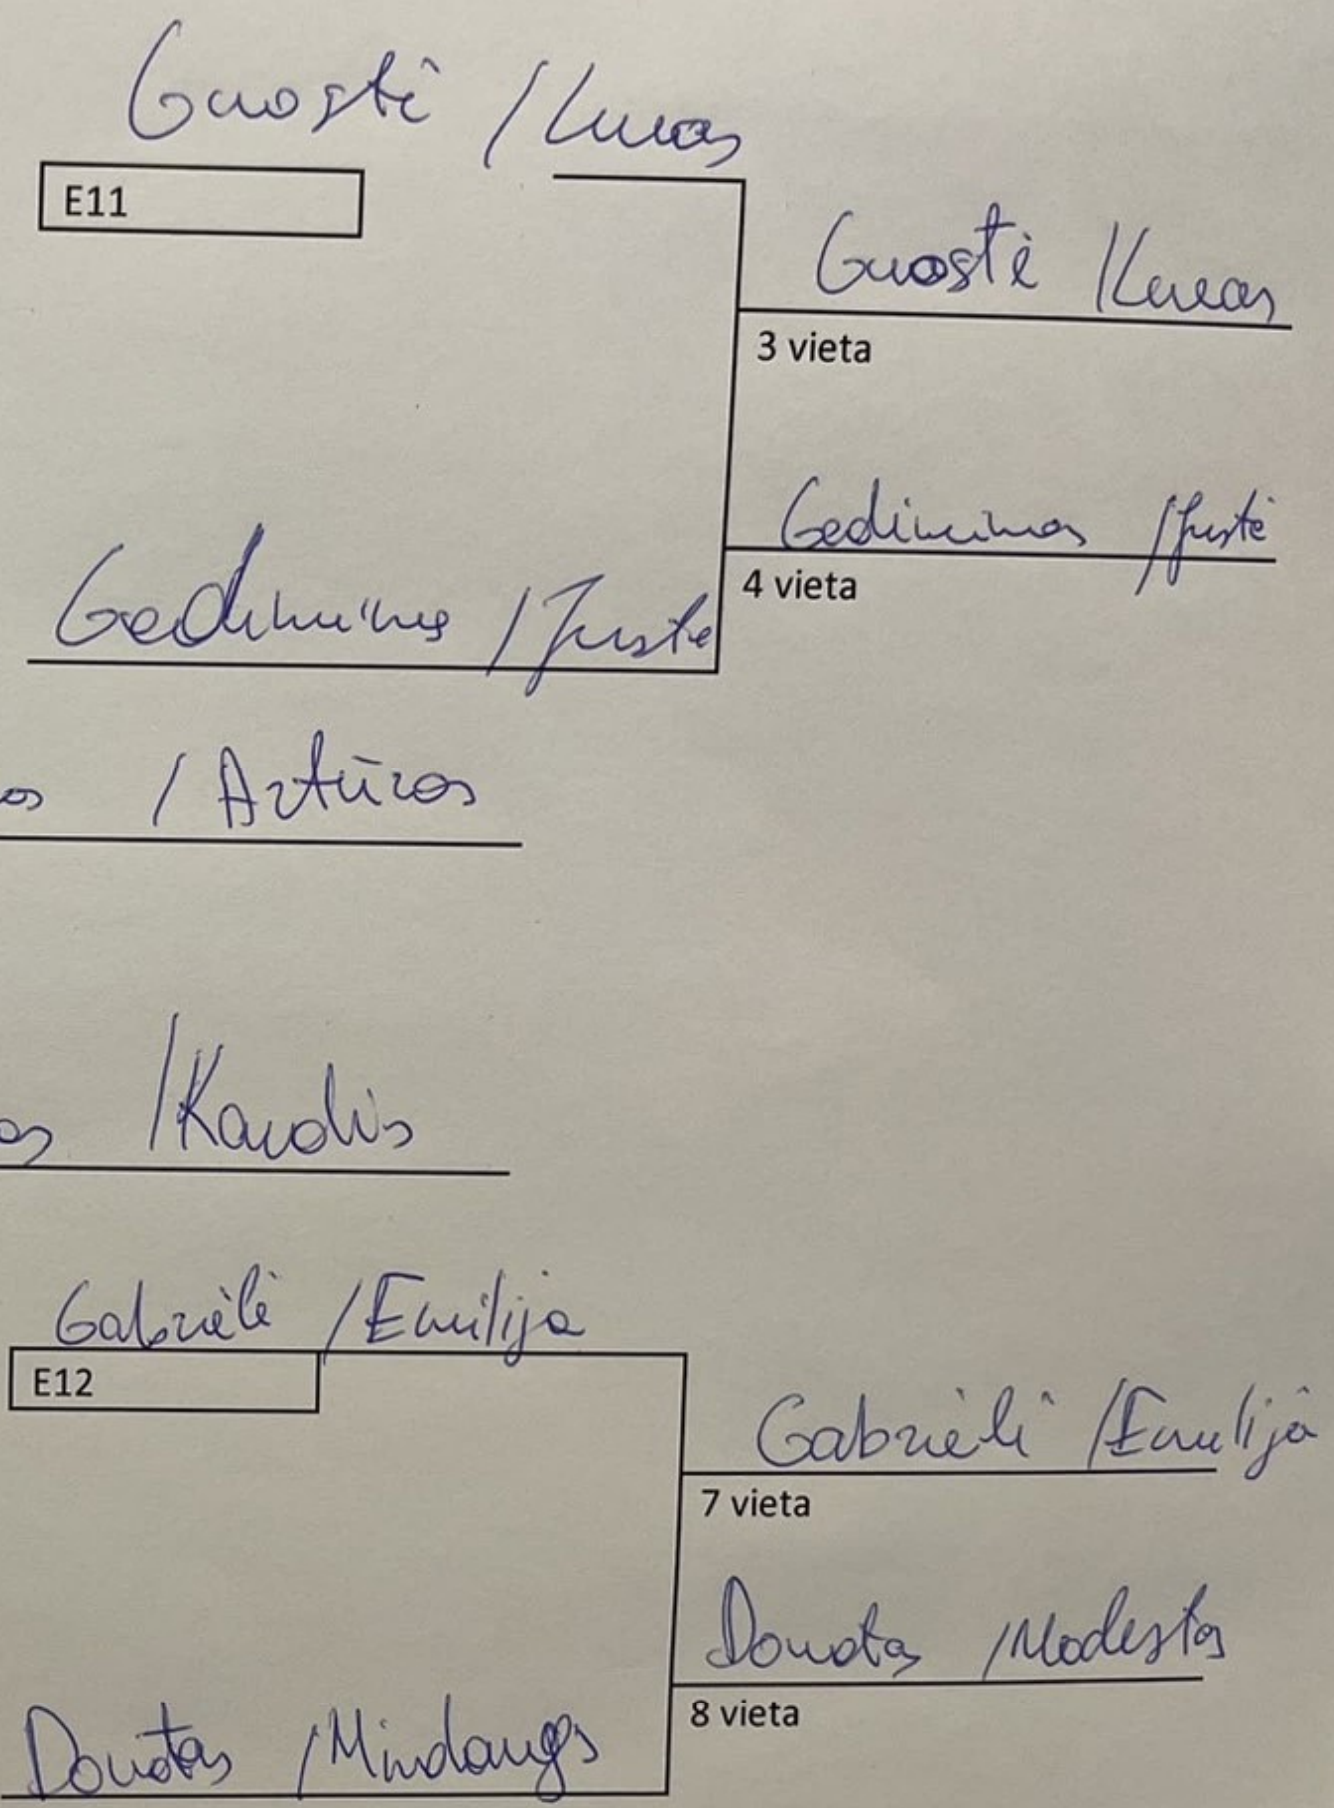 Guostė / Lukas
E11
Guostė / Lukas
3 vieta
Gediminas / Justė
4 vieta
Gediminas / Justė
/ Artūras
/ Karolis
Gabrielė / Emilija
E12
Gabrielė / Emilija
7 vieta
Donatas / Modestas
8 vieta
Donatas / Mindaugs